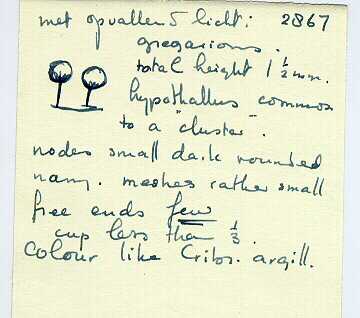 met opvallend licht: 2867
gregarious.
total height 1 1/2 mm.
hypothallus common
to a "cluster".
nodes small dark rounded
many. meshes rather small
free ends few
cup less than 1/3.
Colour like Cribr. argill.